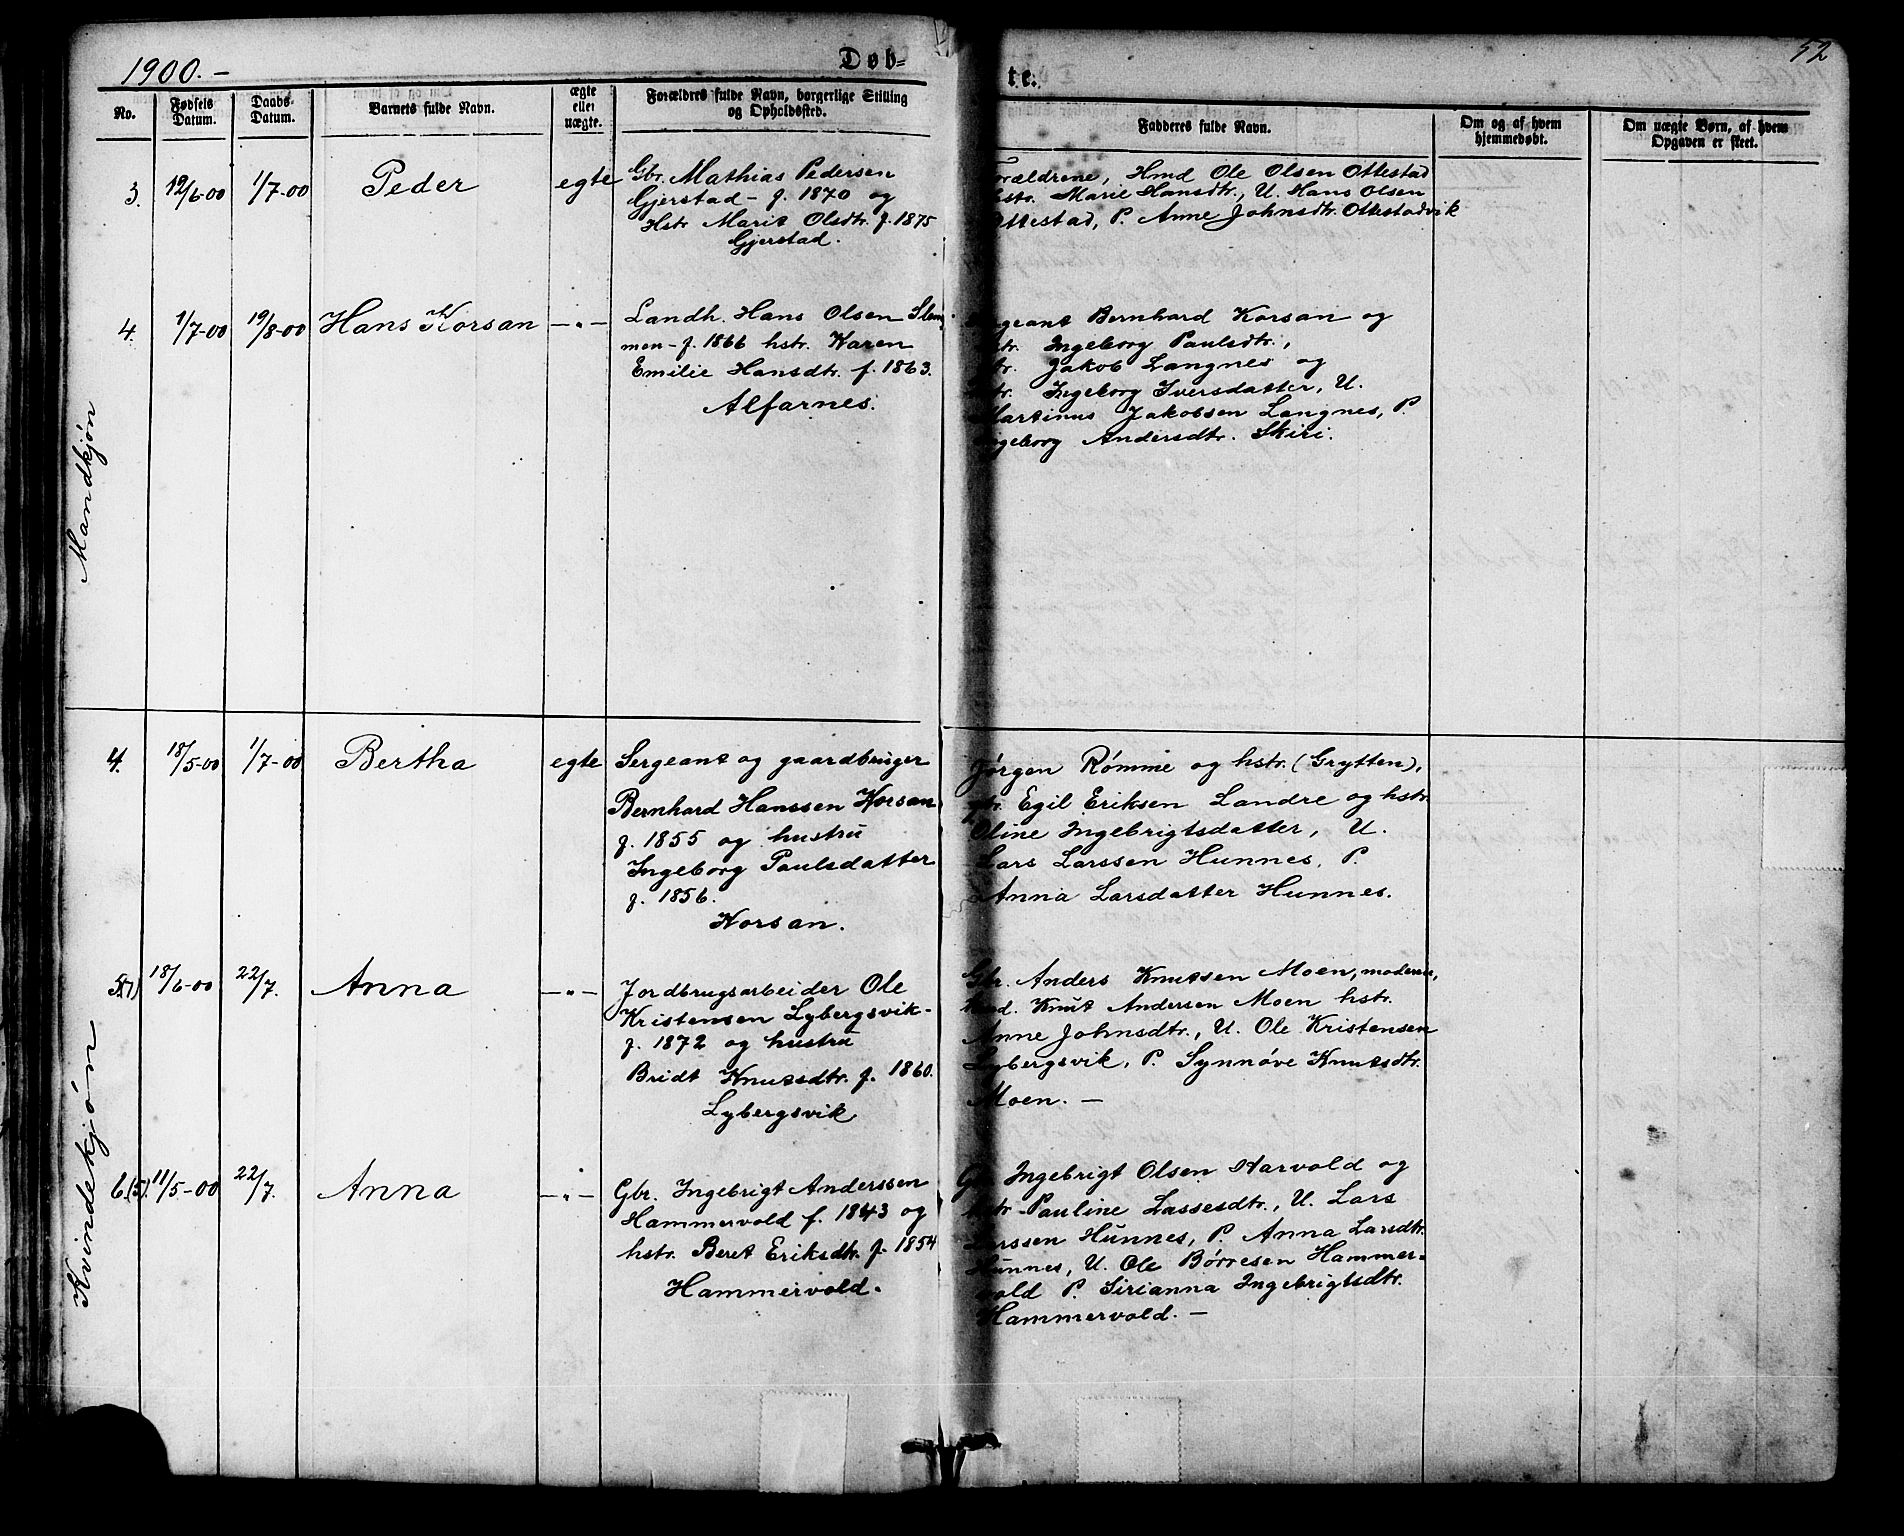 1900.-
Døb-
te.
52
No.
Fødsels Datum.
Daabs-Datum.
Barnets fulde Navn.
ægte eller uægte.
Forældres fulde Navn, borgerlige Stilling
og Opholdssted.
Fadderes fulde Navn.
Om og af hvem
hjemmedøbt.
Om uægte Børn, af hvem
Opgaven er skeet.
Mandkjøn
3. 12/6-00 1/7-00 Peder egte
Gbr. Mathias Pedersen
Gjerstad - f. 1870 og
Hstr Marit Olsdtr. f. 1875
Gjerstad.
Forældrene, Hmd Ole Olsen Ottestad
hstr. Marie Hansdtr., U. Hans Olsen
Ottestad, P. Anne Johnsdtr. Ottestadvik
4. 1/7-00 19/8-00 Hans Korsan -"-
Landh. Hans Olsen Slem
men - f. 1866 hstr. Karen
Emilie Hansdtr. f. 1863.
Alfarnes.
Sergeant Bernhard Korsan og
hstr. Ingeborg Paulsdtr.,
Jakob Langnes og
hstr. Ingeborg Iversdatter, U.
Martinus Jakobsen Langnes, P.
Ingeborg Andersdtr. Skiri.
Kvindekjøn
4. 18/5-00 1/7-00 Bertha egte
Sergeant og gaardbruger
Bernhard Hanssen Korsan
f. 1855 og hustru
Ingeborg Paulsdatter
f. 1856.
Korsan.
Jørgen Rømme og hstr. (Grytten),
gbr. Egil Eriksen Landre og hstr.
Oline Ingebrigtsdatter, U.
Lars Larssen Hunnes, P.
Anna Larsdatter Hunnes.
5(7) 18/6-00 22/7. Anna -"-
Jordbrugsarbeider Ole
Kristensen Lybergsvik-
f. 1872 og hustru
Bridt Knutsdtr. f. 1860.
Lybergsvik
Gbr. Anders Knutsen Moen, moderen,
Knut Andersen Moen hstr.
Anne Johnsdtr., U. Ole Kristensen
Lybergsvik, P. Synnøve Knutsdtr.
Moen. -
6.(5). 11/5-00 22/7. Anna -"-
Gbr. Ingebrigt Anderssen
Hammervold f. 1843 og
hstr. Beret Eriksdtr. f. 1854
Hammervold.
Gbr Ingebrigt Olsen Harvold og
hstr - Pauline Lassesdtr., U. Lars
Larssen Hunnes, P. Anna Larsdtr.
Hunnes, U. Ole Børresen Hammer-
vold P. Sirianna Ingebrigtsdtr.
Hammervold. -